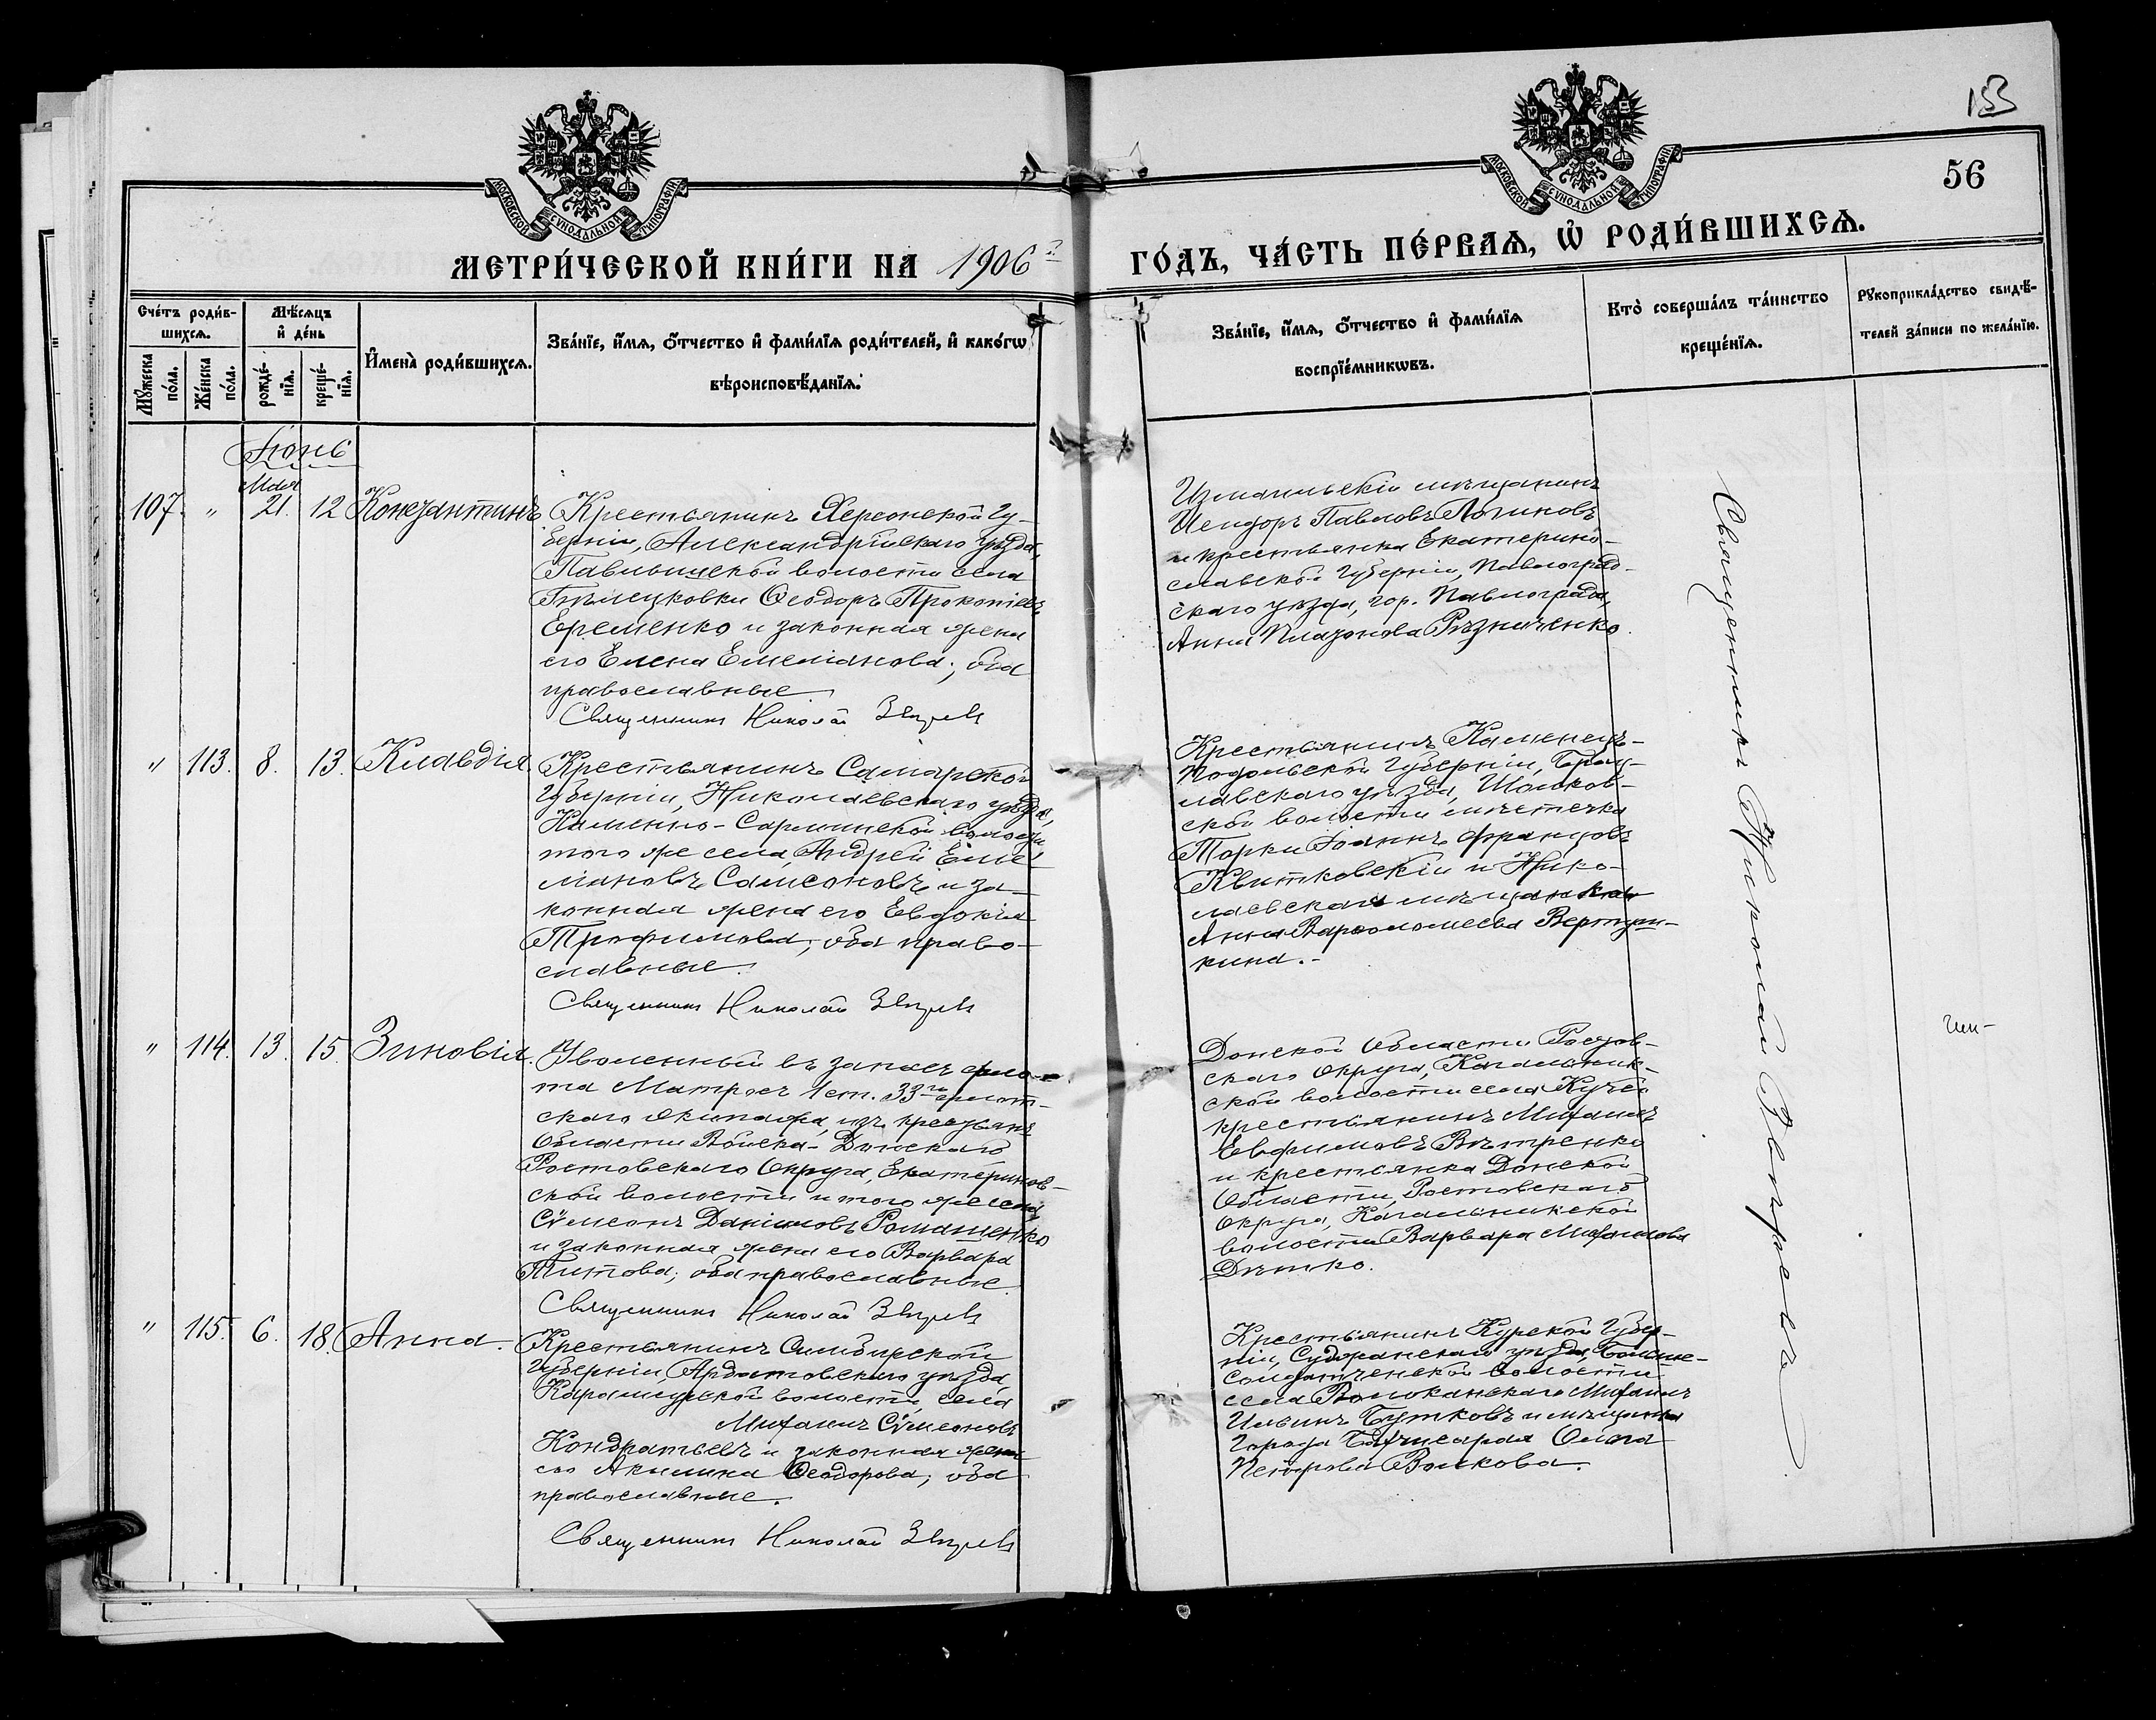 153
56
МОСКОВСКОЙ СѴНОДАЛЬНОЙ ТИПОГРАФІИ
МОСКОВСКОЙ СѴНОДАЛЬНОЙ ТИПОГРАФІИ
МЕТРИ́ЧЕСКОЙ КНИ́ГИ НА 1906 г.
ГО́ДЪ, ЧА́СТЬ ПЕ́РВАѦ, Ѽ РОДИ́ВШИХСѦ.
Сче́тъ роди́в-
шихсѧ.
Мꙋ́жеска
по́ла.
Же́нска
по́ла.
Мѣ́сѧцъ
и҆ де́нь
рожде́-
нїѧ.
креще́-
нїѧ.
И҆мена̀ роди́вшихсѧ.
Зва́нїе, и҆́мѧ, ѻ҆́тчество и҆ фами́лїѧ роди́телей, и҆ како́гѡ
вѣроисповѣ́данїѧ.
Зва́нїе, и҆́мѧ, ѻ҆́тчество и҆ фами́лїѧ
воспрїе́мникѡвъ.
Кто̀ соверша́лъ та́инство
креще́нїѧ.
Рꙋкоприкла́дство свидѣ́-
телей за́писи по жела́нїю.
Іюнь
Мая
107. " 21. 12 Константинъ
Крестьянинъ Херсонской Гу-
берніи, Александрійскаго уѣзда,
Павлышской волости села
Ѳеодоръ Прокопіевъ
Еременко и законная жена
его Елена Емеліанова; оба
православные
Священникъ Николай Звѣревъ
Измаильскій мѣщанинъ
Исидоръ Павловъ Логиновъ
и крестьянка Екатерино-
славской Губерніи, Павлоград-
скаго уѣзда, гор. Павлограда,
Анна Платонова Рѣзниченко.
" 113. 8. 13. Клавдія.
Крестьянинъ Самарской
Губерніи, Николаевскаго уѣзда,
Каменно-Сарминской волости
того же села Андрей Еме-
ліановъ Самсоновъ и за-
конная жена его Евдокія
Трофимова; оба право-
славные.
Священникъ Николай Звѣревъ
Крестьянинъ Каменецъ-
Подольской Губерніи, Брац-
лавскаго уѣзда, Шпиков-
ской волости мѣстечка
Торки Іоаннъ Францовъ
Квитковскій и Нико-
лаевская мѣщанка
Анна Варѳоломеева Вертуш-
кина.-
" 114. 13. 15. Зиновія.
Уволенный въ запасъ фло-
та Матросъ 1 ст. 33го флот-
скаго экипажа, изъ крестьянъ
Области Войска-Донскаго
Ростовскаго Округа, Екатеринов-
ской волости и того же села
Сѵмеонъ Даніиловъ Ромащенко
и законная жена его Варвара
Титова; оба православные.
Священникъ Николай Звѣревъ
Донской Области Ростов-
скаго Округа, Кагальник-
ской волости села
крестьянинъ Михаилъ
Евфимовъ Вѣтренко
и крестьянка Донской
Области, Ростовскаго
Округа, Кагальникской
волости Варвара Михаилова
Дѣтко.
" 115. 6. 18. Анна.
Крестьянинъ Симбирской
Губерніи, Ардатовскаго уѣзда
волости, села
Михаилъ Сѵмеоновъ
Кондратьевъ и законная жена
его Акилина Ѳеодорова; оба
православные.
Священникъ Николай Звѣревъ
Крестьянинъ Курской Губер-
ніи, Суджанскаго уѣзда, Больше-
солдатченской волости
села Волоконскаго Михаилъ
Ильинъ Бутковъ и мѣщанка
города Бахчисарая Ольга
Петрова Волкова.
Священникъ Николай Звѣревъ